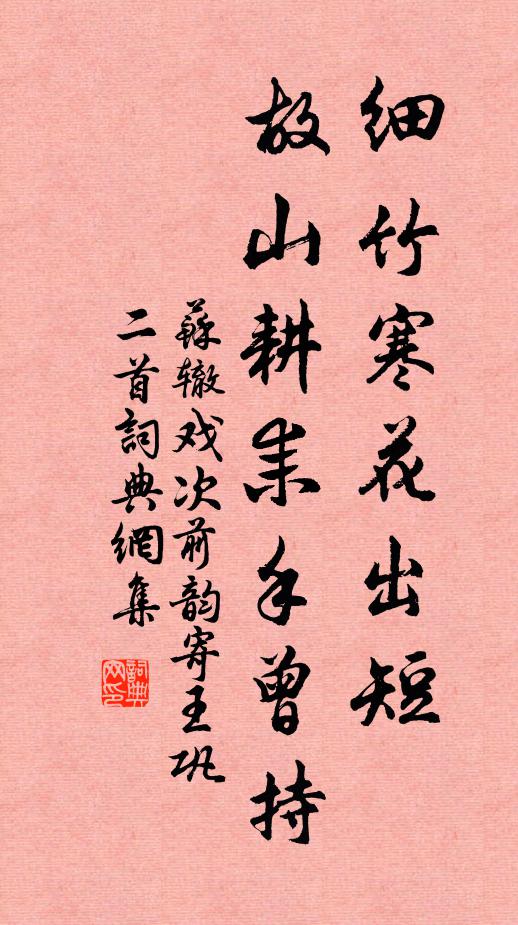 细竹寒花出短
故山耕耒手曾持
蘇辙戏次前韵寄王巩
二首詞典網集
詞典
网印